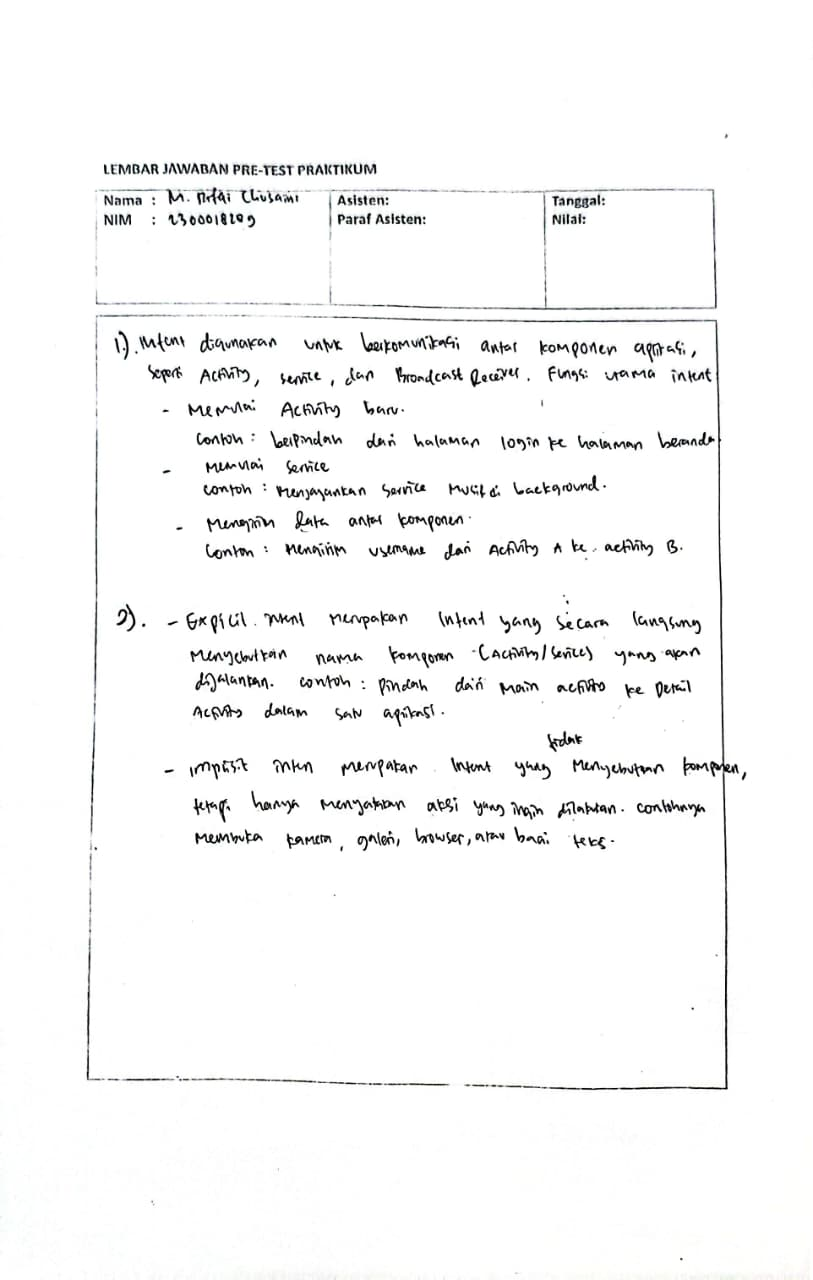 LEMBAR JAWABAN PRE-TEST PRAKTIKUM
Nama : M. Rifai Chusaini
NIM : 2300018209
Asisten:
Paraf Asisten:
Tanggal:
Nilai:
1). Intent digunakan untuk berkomunikasi antar komponen aplikasi,
seperti Activity, service, dan Broadcast Receiver. Fungsi utama intent
- Memulai Activity baru.
Contoh : berpindah dari halaman login ke halaman beranda
- Memulai service
contoh : Menjalankan service musik di background.
- Mengirim data antar komponen.
Contoh : Mengirim username dari Activity A ke activity B.
2). - Explicit intent merupakan Intent yang secara langsung
Menyebutkan nama komponen (Activity/Service) yang akan
dijalankan. contoh : pindah dari Main activity ke Detail
Activity dalam satu aplikasi.
tidak
- implisit inten merupakan Intent yang Menyebutkan komponen,
tetapi hanya menyatakan aksi yang ingin dilakukan. contohnya
Membuka kamera, galeri, browser, atau bagi teks.